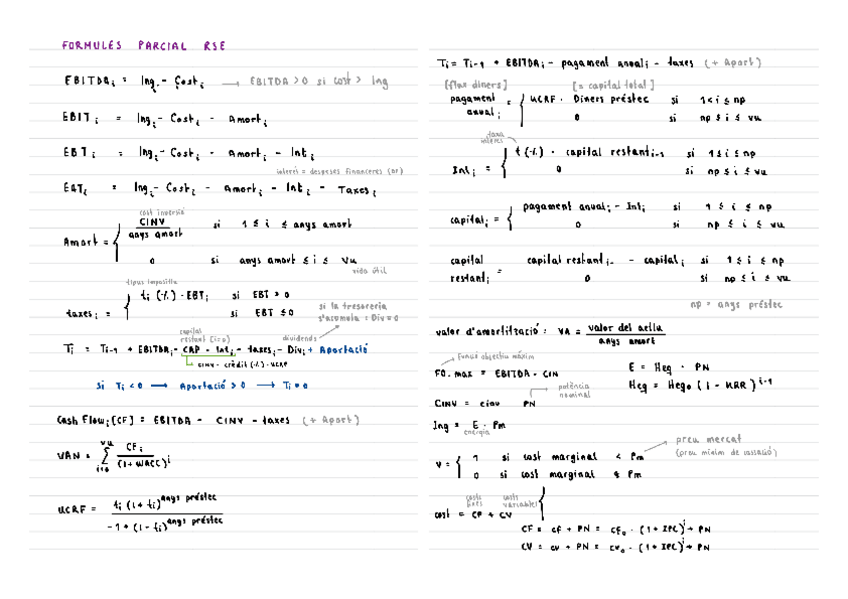 FORMULES PARCIAL RSE
EBITDA i = Ing.- Cost i → EBITDA > 0 si cost > Ing
EBIT i = Ing i - Cost i - Amort i
EBT i = Ing i - Cost i - Amort i - Int i
interes = despeses financeres (nr)
EAT i = Ing i - Cost i - Amort i - Int i - Taxes i
cost inversió
Amort = { CINV / anys amort si 1 ≤ i ≤ anys amort
0 si anys amort ≤ i ≤ Vu
vida útil
tipus impositiu
taxes i = { ti (%) · EBT i si EBT > 0
0 si EBT ≤ 0
si la tresoreria s'acumula = Div = 0
capital restant (i=0)
dividends
Ti = Ti-1 + EBITDA i - CAP - Int i - taxes i - Div i + Aportació
CINV - crèdit (%) · UCRF
si Ti < 0 → Aportació > 0 → Ti = 0
Cash Flow i [CF] = EBITDA - CINV - taxes (+ Aport)
VAN = Σ i=0 vu CF i / (1 + WACC)^i
UCRF = ti (1 + ti)^anys préstec / -1 + (1 - ti)^anys préstec
Ti = Ti-1 + EBITDA i - pagament anual i - taxes (+ Aport)
[flux diners] [≡ capital total]
pagament anual i = { UCRF · Diners préstec si 1 < i ≤ np
0 si np ≤ i ≤ vu
taxa interès
Int i = { t (%) · capital restant i-1 si 1 ≤ i ≤ np
0 si np ≤ i ≤ vu
capital i = { pagament anual i - Int i si 1 ≤ i ≤ np
0 si np ≤ i ≤ vu
capital restant i = capital restant i- - capital i si 1 ≤ i ≤ np
0 si np ≤ i ≤ vu
np = anys préstec
valor d'amortització: VA = valor del actiu / anys amort
Funció objectiu màxim
FO. max = EBITDA - CIN
E = Heq · PN
Heq = Heq0 (1 - KRR)^i-1
potència nominal
CINV = cinv PN
Ing = E · Pm
energia
V = { 1 si cost marginal < Pm
0 si cost marginal ≥ Pm
preu mercat
(preu mínim de cassació)
costs fixes costs variables
cost = CF + CV {
CF = cf + PN = CF0 · (1 + IPC)^i + PN
CV = cv + PN = CV0 · (1 + IPC)^i + PN